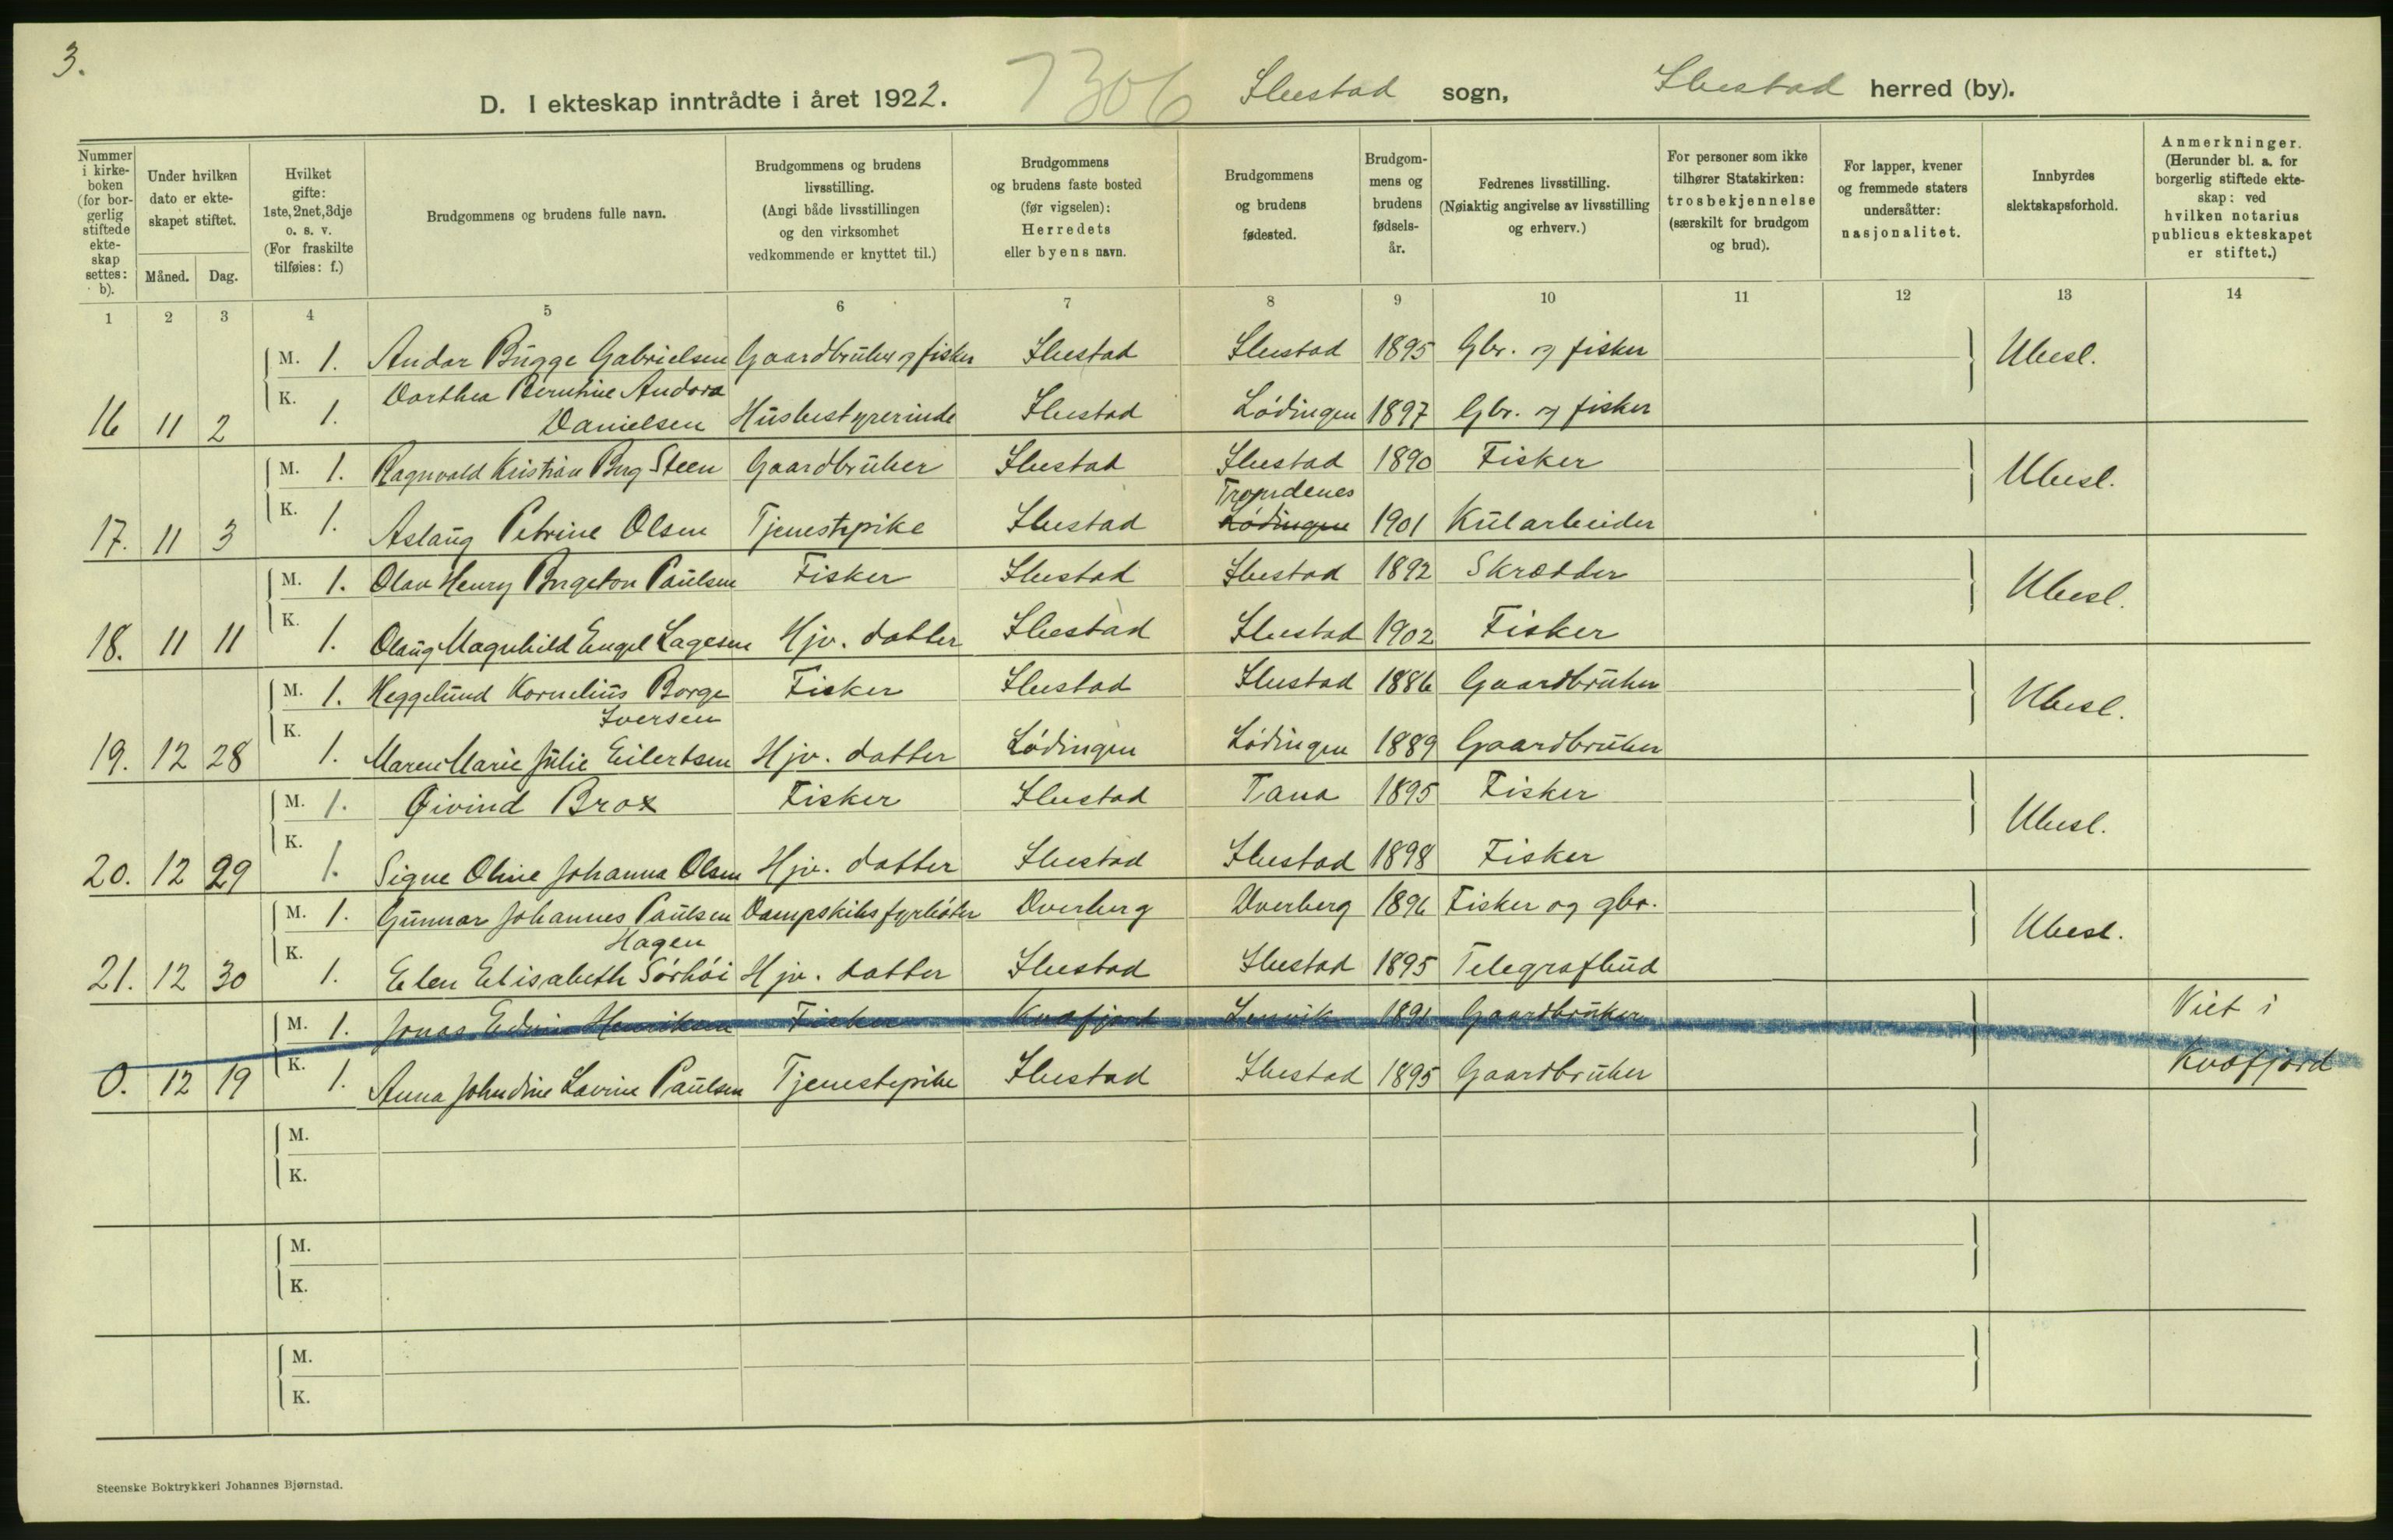 3.
D. I ekteskap inntrådte i året 1922. 7306 Ibestad sogn, Ibestad herred (by).
Nummer i kirkeboken (for borgerlig stiftede ekteskap settes: b).
Under hvilken dato er ekteskapet stiftet.
Måned. Dag.
Hvilket gifte: 1ste, 2net, 3dje o. s. v. (For fraskilte tilføies: f.)
Brudgommens og brudens fulle navn.
Brudgommens og brudens livsstilling. (Angi både livsstillingen og den virksomhet vedkommende er knyttet til.)
Brudgommens og brudens faste bosted (før vigselen): Herredets eller byens navn.
Brudgommens og brudens fødested.
Brudgommens og brudens fødselsår.
Fedrenes livsstilling. (Nøiaktig angivelse av livsstilling og erhverv.)
For personer som ikke tilhører Statskirken: trosbekjennelse (særskilt for brudgom og brud).
For lapper, kvener og fremmede staters undersåtter: nasjonalitet.
Innbyrdes slektskapsforhold.
Anmerkninger. (Herunder bl. a. for borgerlig stiftede ekteskap: ved hvilken notarius publicus ekteskapet er stiftet.)
1 2 3 4 5 6 7 8 9 10 11 12 13 14
M. 1. Andor Bugge Gabrielsen Gaardbruker og fisker Ibestad Ibestad 1895 Gbr. og fisker Ubesl.
K. Dorthea Berntine Andora
16 11 2 1. Danielsen Husbestyrerinde Ibestad Lödingen 1897 Gbr. og fisker
M. 1. Ragnvald Kristian Berg Steen Gaardbruker Ibestad Ibestad 1890 Fisker Ubesl.
Tranidenes
17. 11 3 K. 1. Aslaug Petrine Olsen Tjenestepike Ibestad Lödingen 1901 Kularbeider
M. 1. Olav Henry Bergeton Paulsen Fisker Ibestad Ibestad 1892 Skrædder Ubesl.
18. 11 11 K. 1. Olaug Magnhild Engel Lagesen Hjv. datter Ibestad Ibestad 1902 Fisker
M. 1. Heggelund Kornelius Borge Fisker Ibestad Ibestad 1886 Gaardbruker Ubesl.
Iversen
19. 12 28 K. 1. Maren Marie Julie Eilertsen Hjv. datter Lödingen Lödingen 1889 Gaardbruker
M. 1. Øivind Brox Fisker Ibestad Tana 1895 Fisker Ubesl.
20. 12 29 K. 1. Signe Oline Johanna Olsen Hjv. datter Ibestad Ibestad 1898 Fisker
M. 1. Gunnar Johannes Paulsen Dampskibsfyrböter Dverberg Dverberg 1896 Fisker og gbr. Ubesl.
Hagen
21. 12 30 K. 1. Elen Elisabeth Sörhöi Hjv. datter Ibestad Ibestad 1895 Telegrafbud
M. 1. Jonas Edvin Henriksen Fisker Kvæfjord 1891 Gaardbruker Viet i
0. 12 19 K. 1. Anna Johndine Lovine Paulsen Tjenestepike Ibestad Ibestad 1895 Gaardbruker Kvæfjord
M.
K.
M.
K.
M.
K.
Steenske Boktrykkeri Johannes Bjørnstad.